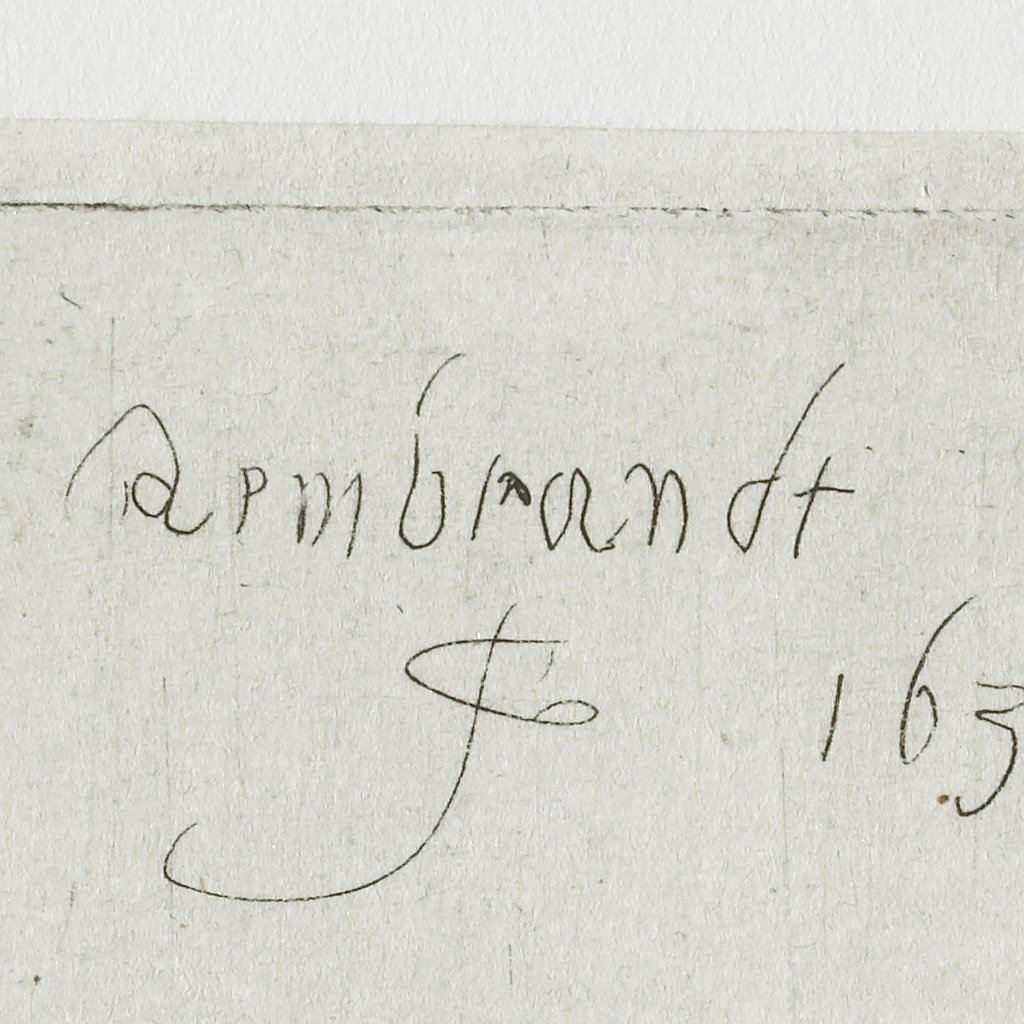 Rembrandt
f 163